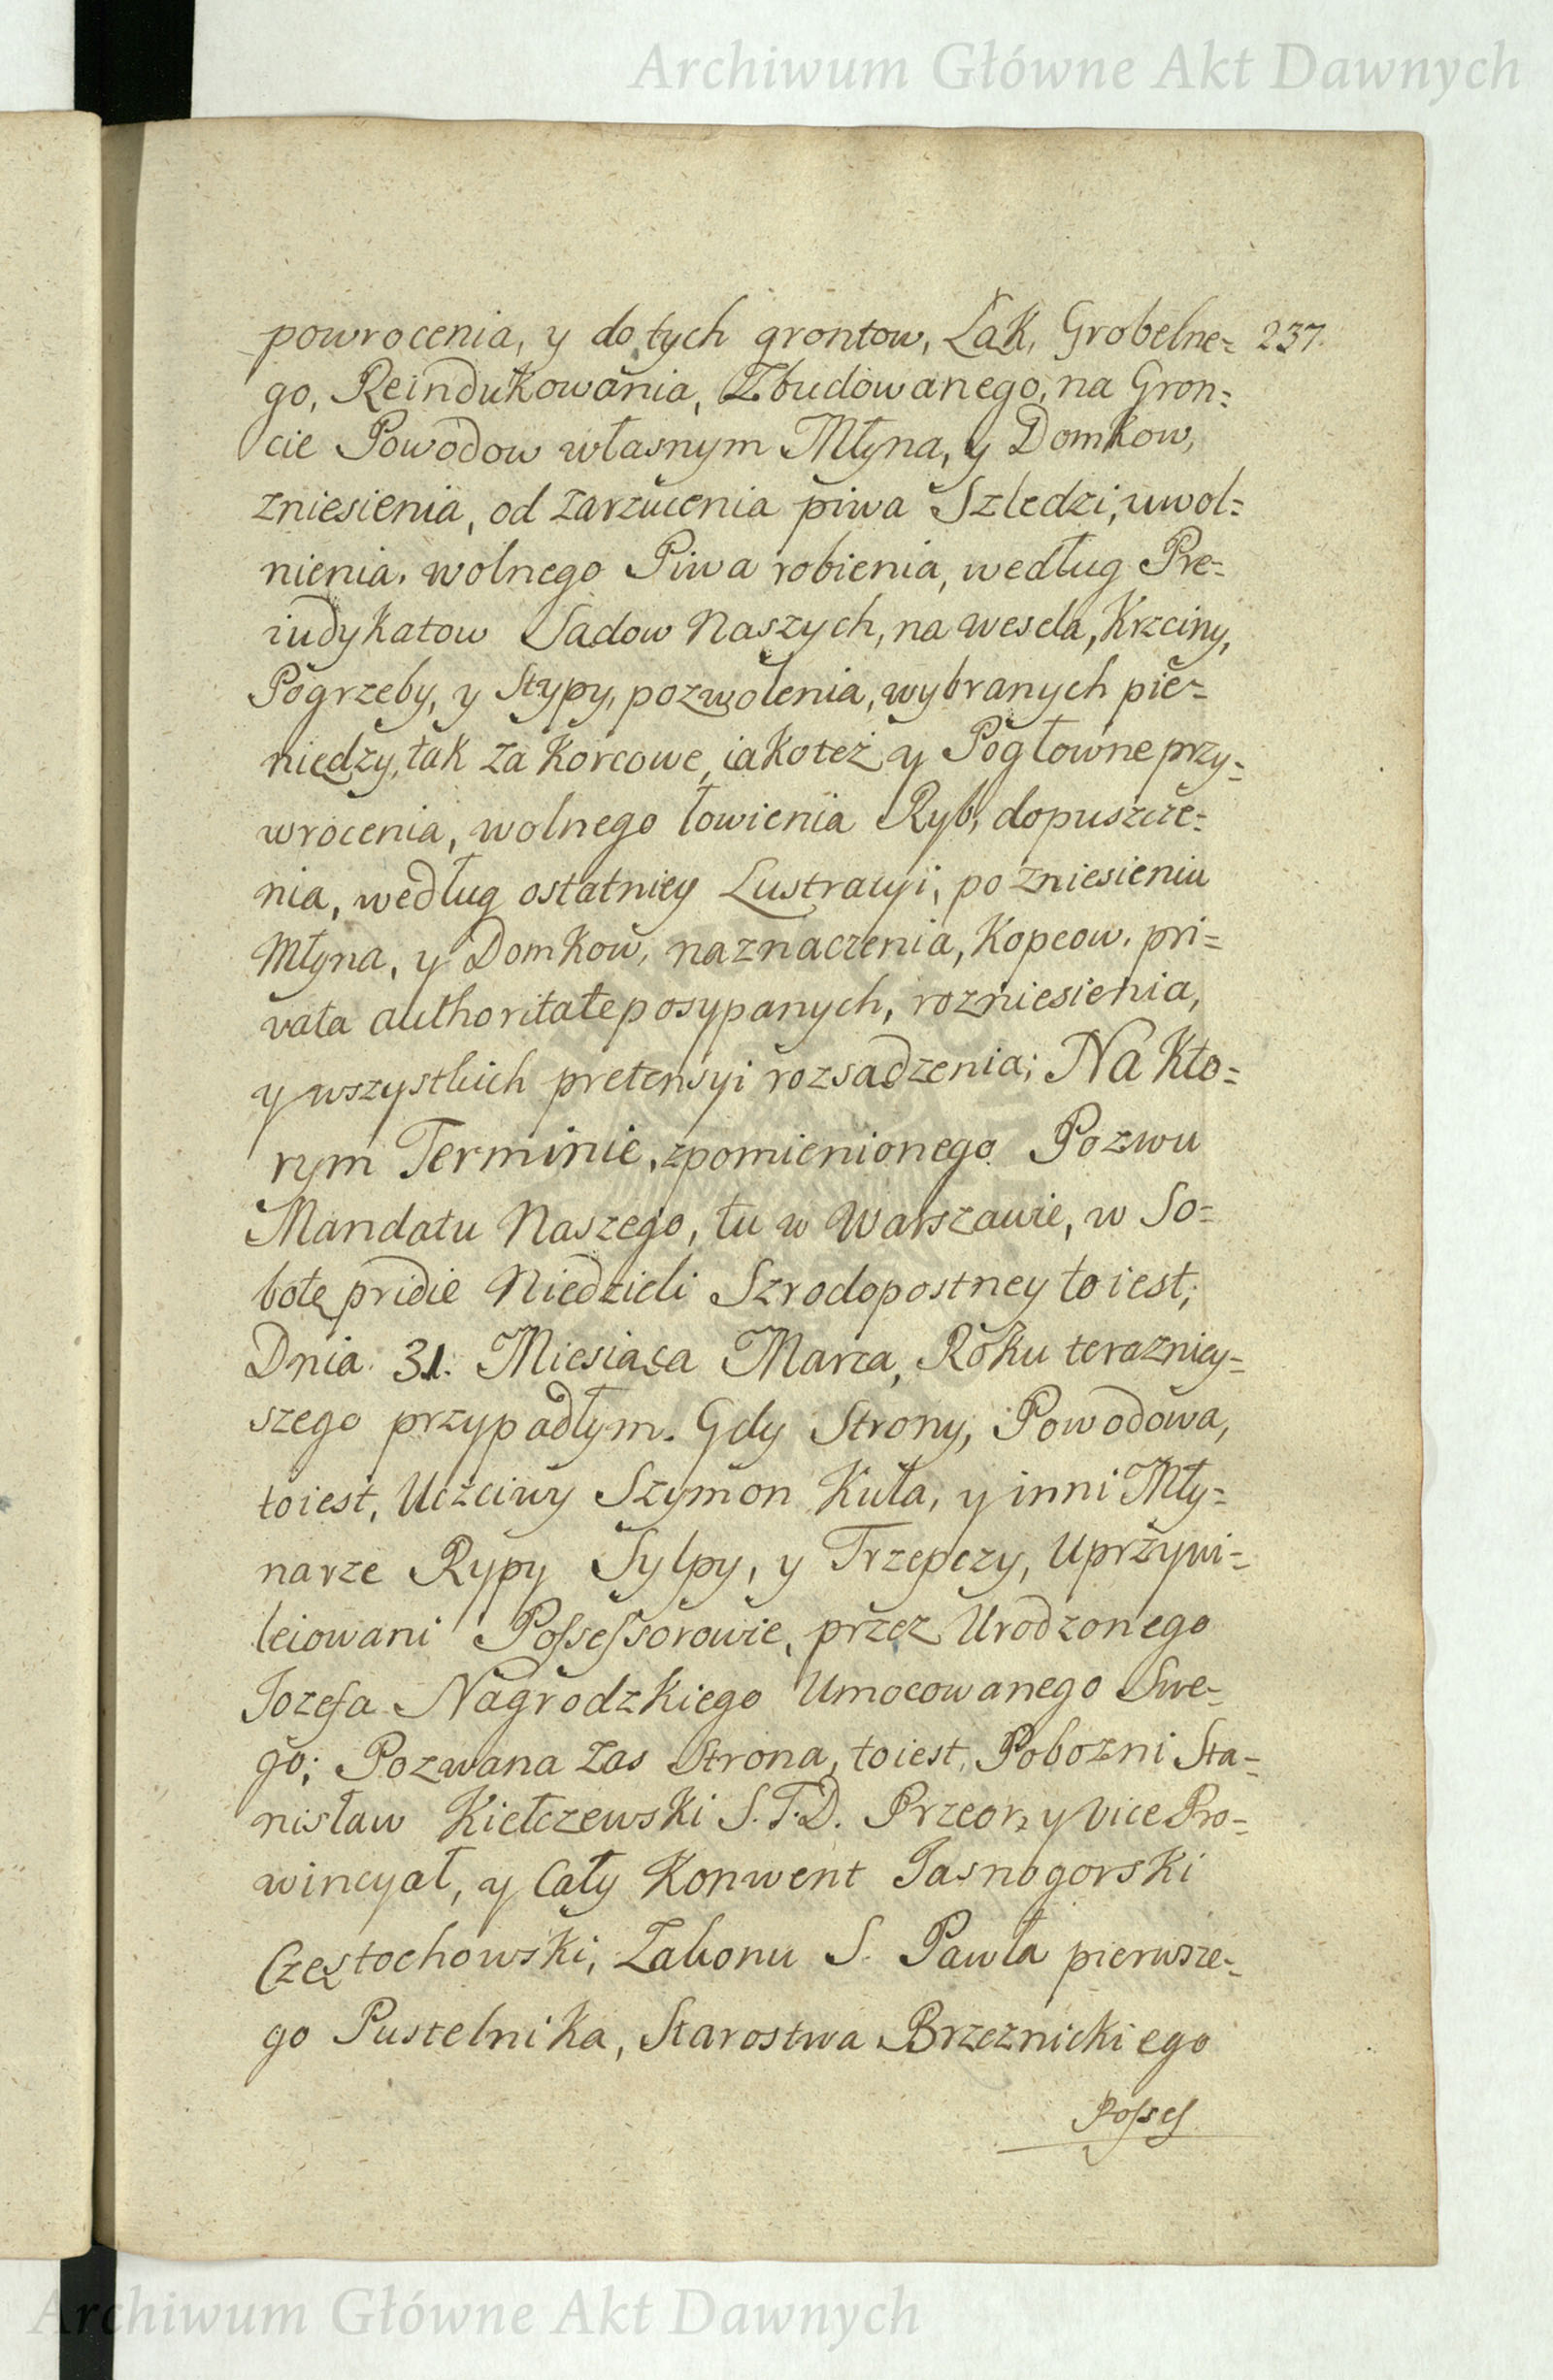 Archiwum Główne Akt Dawnych
powrocenia, y do tych grontow, Łąk, Grobelne= 237.
go, Reindukowania, Zbudowanego, na Gron=
cie Powodow własnym Młyna, y Domkow,
zniesienia, od zarzucenia piwa Szledzi, uwol=
nienia. wolnego Piwa robienia, według Pre=
iudykatow Sądow Naszych, na wesela, Krzciny,
Pogrzeby, y Stypy, pozwolenia, wybranych pie=
niędzy, tak za korcowe, iakoteż y Pogłowne przy=
wrocenia, wolnego łowienia Ryb, dopuszcze=
nia, według ostatniey Lustracyi, po zniesieniu
Młyna, y Domkow, naznaczenia, Kopcow. pri=
vata authoritate posypanych, rozniesienia,
y wszystkich pretensyi rozsądzenia; Na Kto=
rym Terminie, zpomienionego Pozwu
Mandatu Naszego, tu w Warszawie, w So=
botę pridie Niedzieli Szrodopostney to iest;
Dnia 31. Miesiąca Marca, Roku terazniey=
szego przypadłym. Gdy Strony, Powodowa,
toiest, Uczciwy Szymon Kuła, y inni Mły=
narze Rypy Sylpy, y Trzepczy, Uprzywi=
leiowani Possessorowie, przez Urodzonego
Jozefa Nagrodzkiego Umocowanego Swe=
go; Pozwana zas Strona, toiest, Pobozni Sta=
nisław Kiełczewski S.T.D. Przeor, y vice Pro=
wincyał, y Cały Konwent Jasnogorski
Częstochowski, Zakonu S. Pawła pierwsze=
go Pustelnika, Starostwa Brzeznickiego
Posses
Archiwum Główne Akt Dawnych